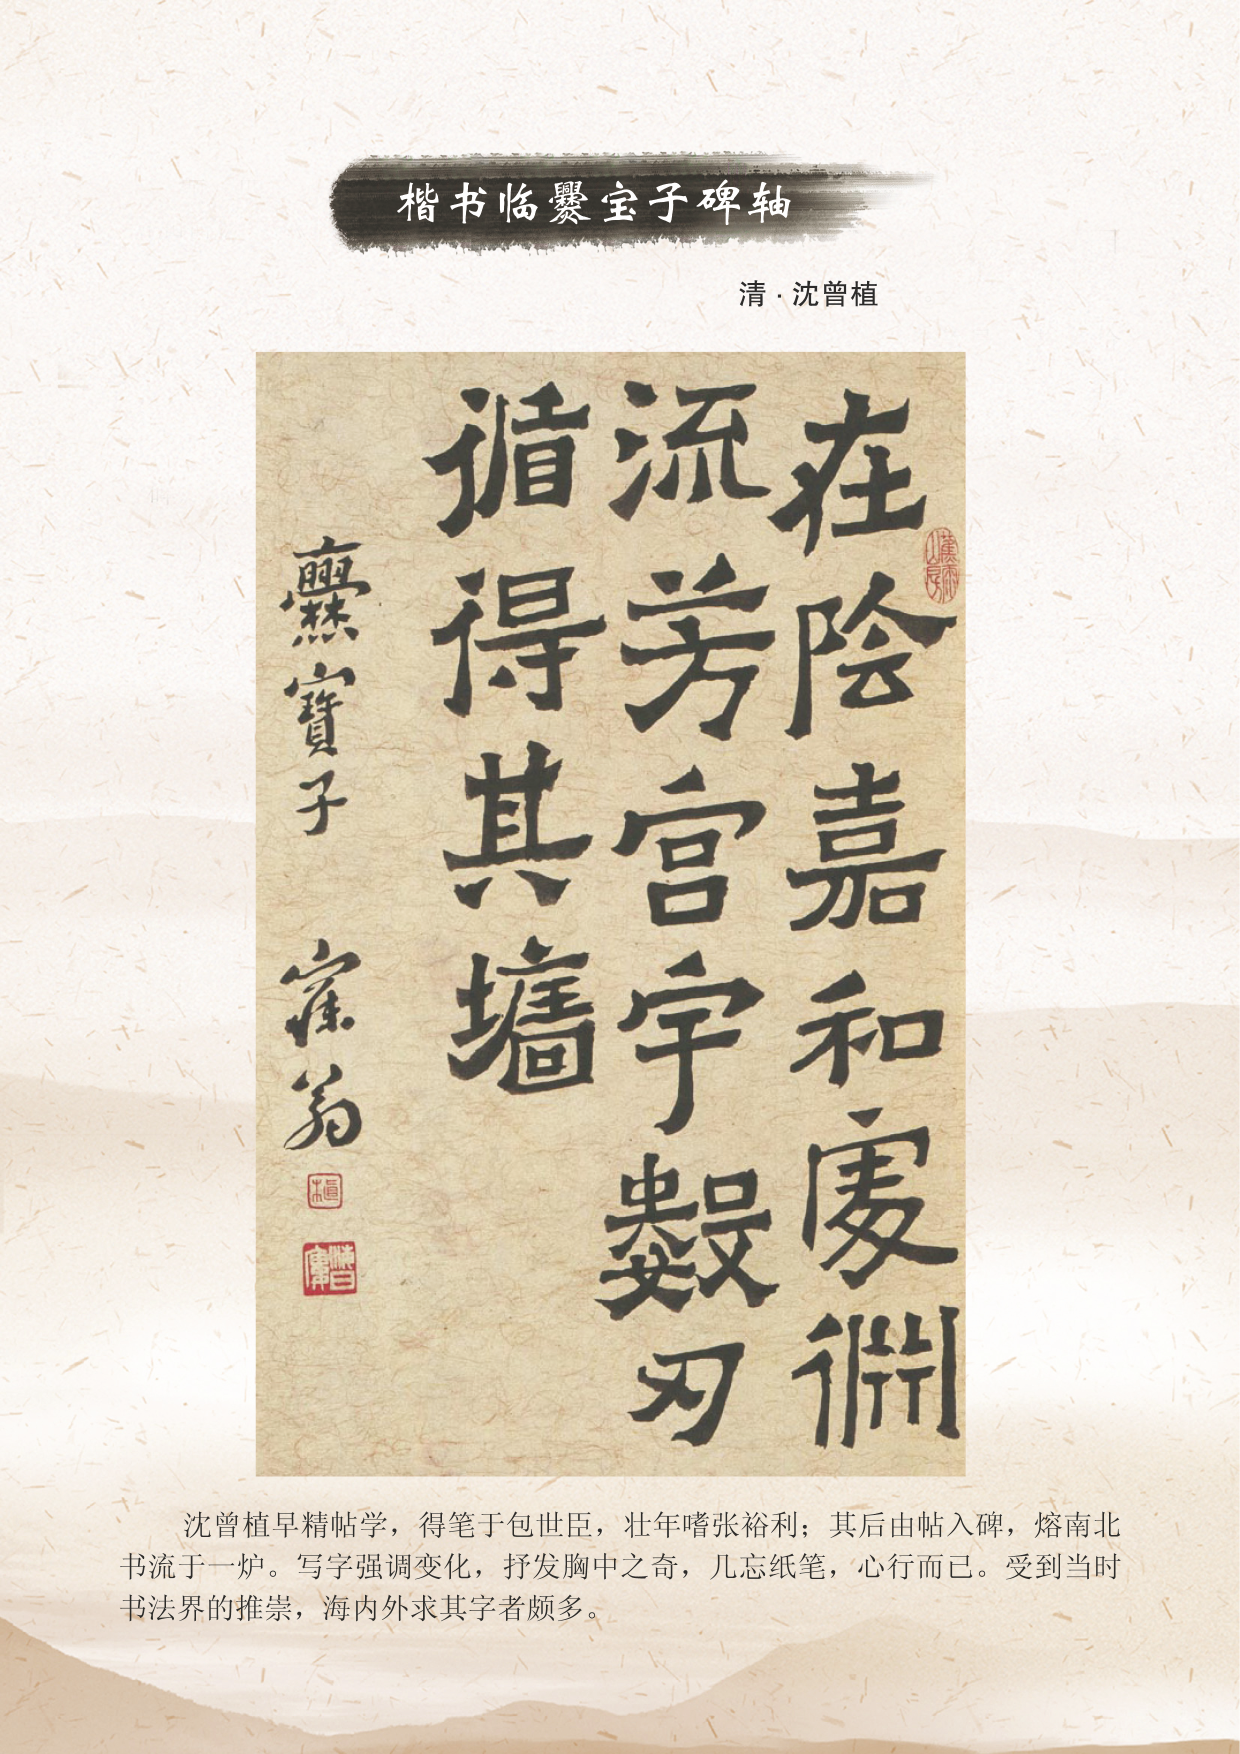 楷书临爨宝子碑轴
清·沈曾植
在阴嘉和處渊
流芳宫宇數刃
循得其墻
爨寶子 寐翁
植
沈曾植早精帖学，得笔于包世臣，壮年嗜张裕利；其后由帖入碑，熔南北
书流于一炉。写字强调变化，抒发胸中之奇，几忘纸笔，心行而已。受到当时
书法界的推崇，海内外求其字者颇多。